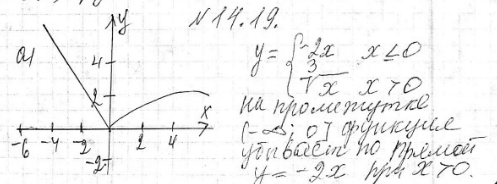 N 14.19.
а)
y
4
2
-6 -4 -2 2 4 x
-2
y = { -2x x ≤ 0
∛x x > 0
на промежутке
(-∞; 0] функция
убывает по прямой
y = -2x при x > 0.